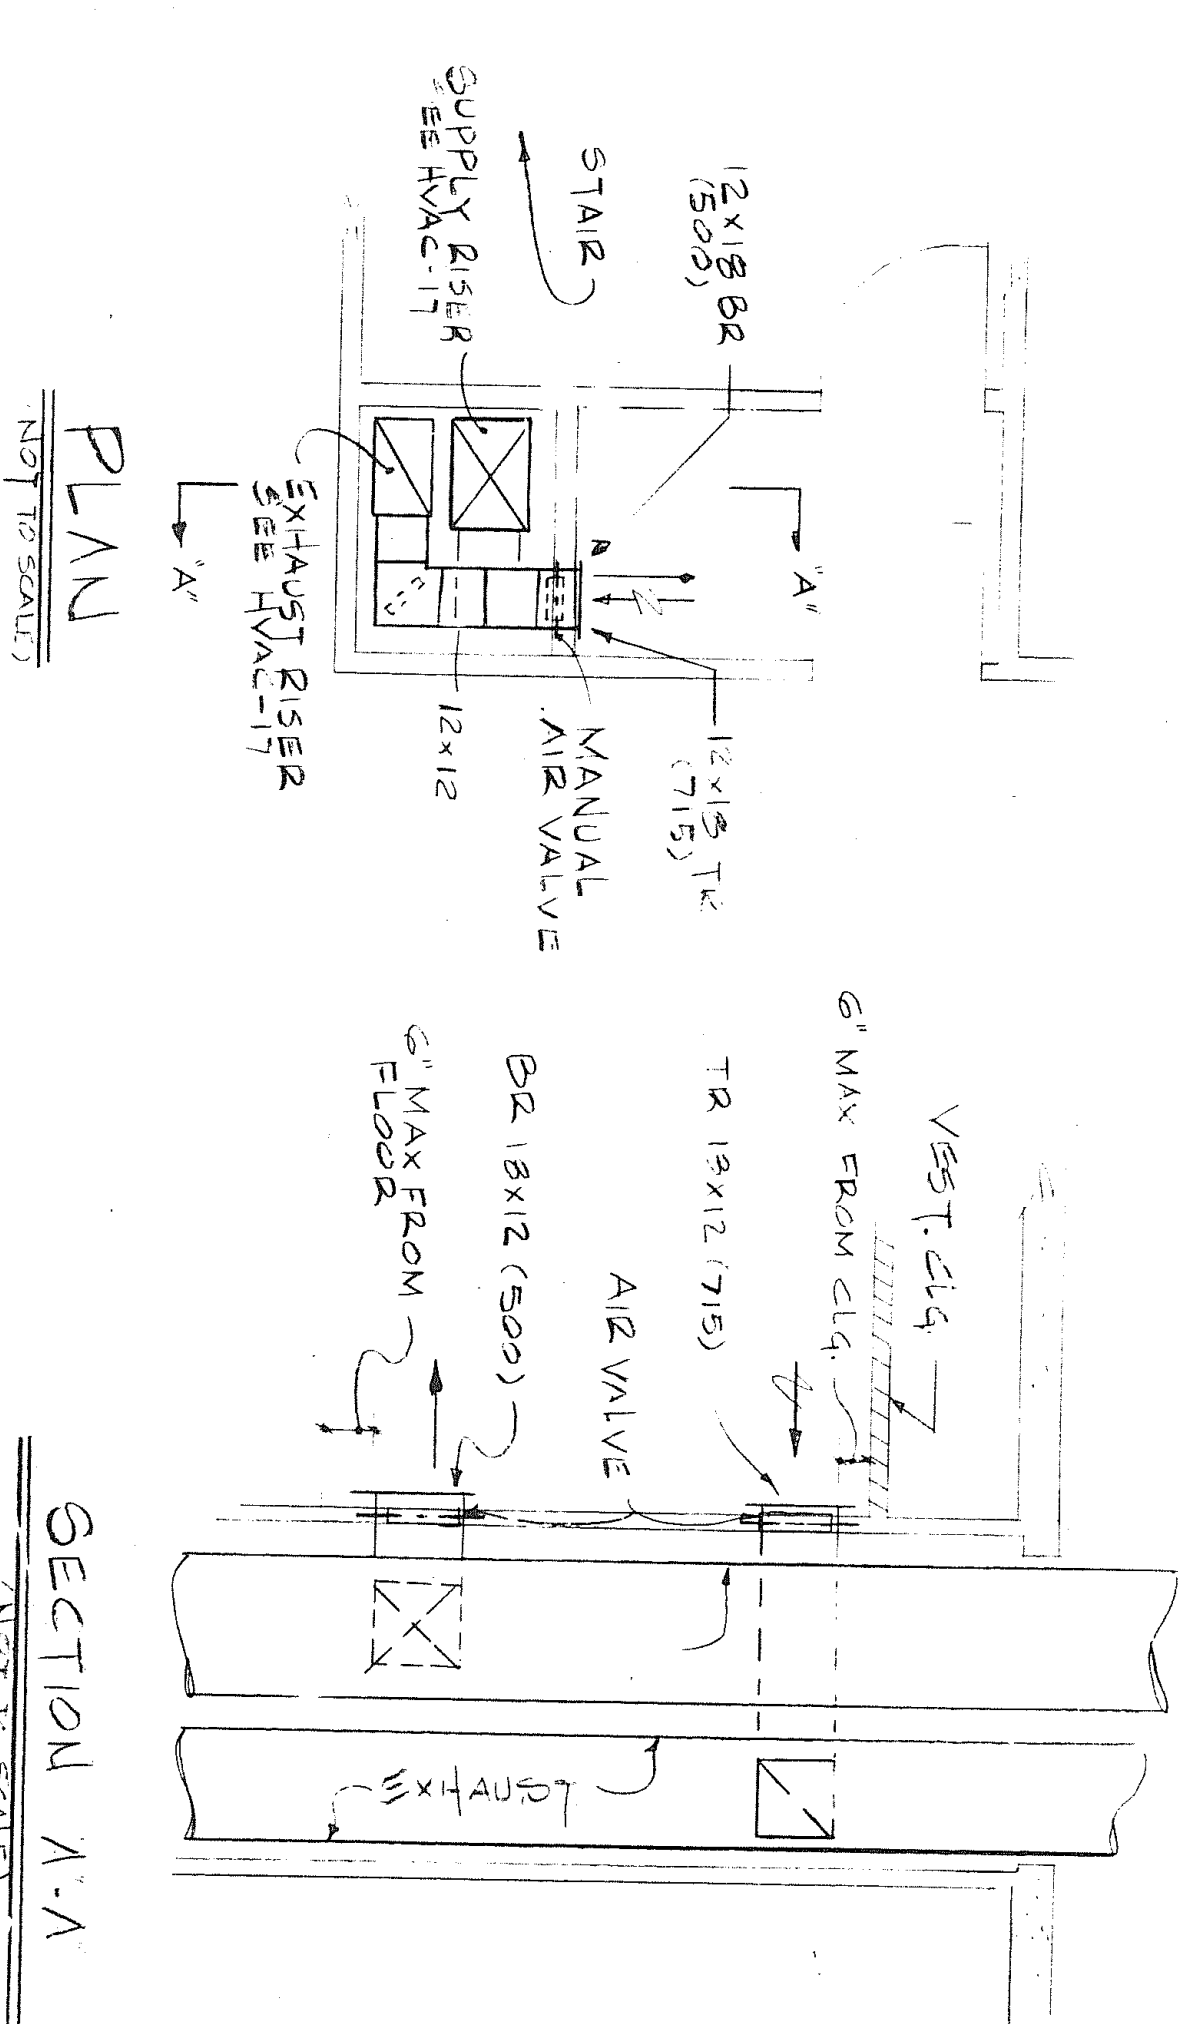 12x18 BR
(500)
STAIR
SUPPLY RISER
SEE HVAC-17
"A"
12x18 TR
(715)
MANUAL
AIR VALVE
12x12
EXHAUST RISER
SEE HVAC-17
"A"
PLAN
NOT TO SCALE)
VEST. CLG.
6" MAX FROM CLG.
TR 18x12 (715)
AIR VALVE
BR 18x12 (500)
6" MAX FROM
FLOOR
EXHAUST
SECTION "A-A"
(NOT TO SCALE)